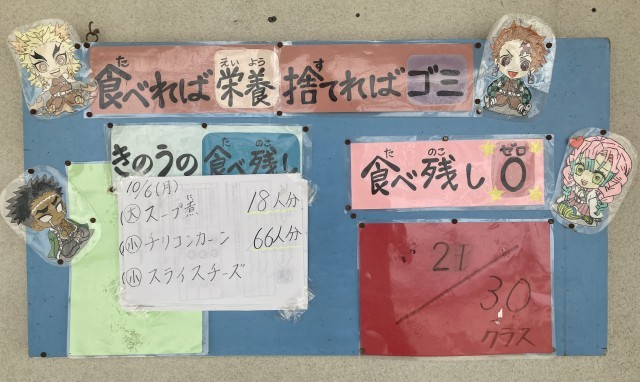 食べれば栄養 捨てればゴミ
た えい よう す
きのうの食べ残し
た のこ
10/6(月)
大 スープ煮 18人分
に
小 チリコンカーン 66人分
小 スライスチーズ
食べ残し0
た のこ ゼロ
21/30
クラス